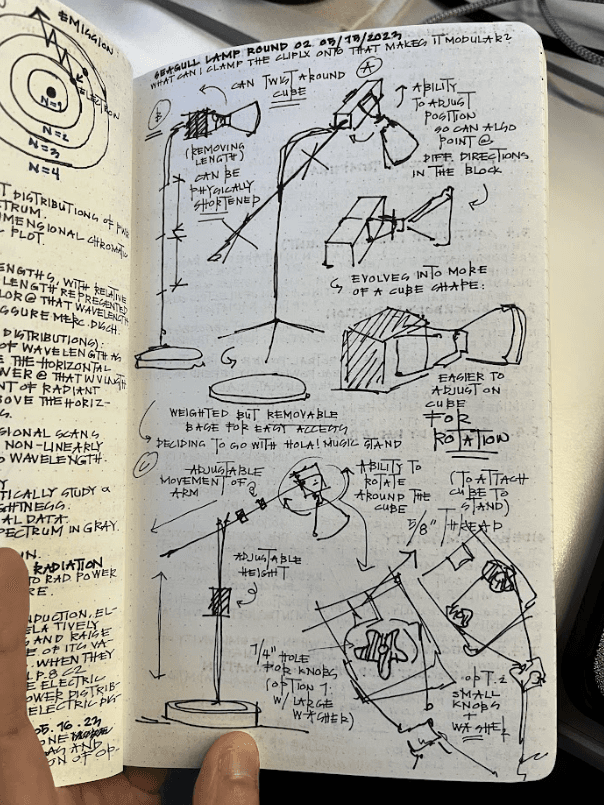 EMISSION
ELECTRON
N=1
N=2
N=3
N=4
T DISTRIBUTIONS OF
TRUM.
DIMENSIONAL CHROMATIC
PLOT.
LENGTHS, WITH RELATIVE
LENGTH REPRESENTED
COLOR @ THAT WAVELENGTH
SSURE MERC. DISCH.
DISTRIBUTIONS):
OF WAVELENGTH AS
THE HORIZONTAL
WER @ THAT WVLNGTH
NT OF RADIANT
BOVE THE HORIZ-
S.
SIONAL SCANS
NON-LINEARLY
WAVELENGTH.
TICALLY STUDY a
GHTNESS.
AL DATA.
SPECTRUM IN GRAY.
RADIATION
TO RAD. POWER
RE.
NDUCTION, EL-
ELATIVELY
AND RAISE
E OF ITS VA-
WHEN THEY
P.8 C2
ELECTRIC
OWER DISTRIB-
ELECTRIC DIS-
05.16.23
AS AND
N OF OP-
SEAGULL LAMP ROUND 02 05/15/2023
WHAT CAN I CLAMP THE CLIPLX ONTO THAT MAKES IT MODULAR?
B
CAN TWIST AROUND
CUBE
(REMOVING
LENGTH)
CAN BE
PHYSICALLY
SHORTENED
A
ABILITY
TO ADJUST
POSITION
SO CAN ALSO
POINT @
DIFF. DIRECTIONS
IN THE BLOCK
EVOLVES INTO MORE
OF A CUBE SHAPE:
EASIER TO
ADJUST ON
CUBE
FOR
ROTATION
WEIGHTED BUT REMOVABLE
BASE FOR EASY ACCESS
DECIDING TO GO WITH HOLA! MUSIC STAND
C
ADJUSTABLE
MOVEMENT OF
ARM
ABILITY TO
ROTATE
AROUND THE
CUBE
(TO ATTACH
CUBE TO
STAND)
5/8" THREAD
ADJUSTABLE
HEIGHT
1/4" HOLE
FOR KNOBS
(OPTION 1
W/ LARGE
WASHER)
OPT. 2
SMALL
KNOBS
+
WASHER